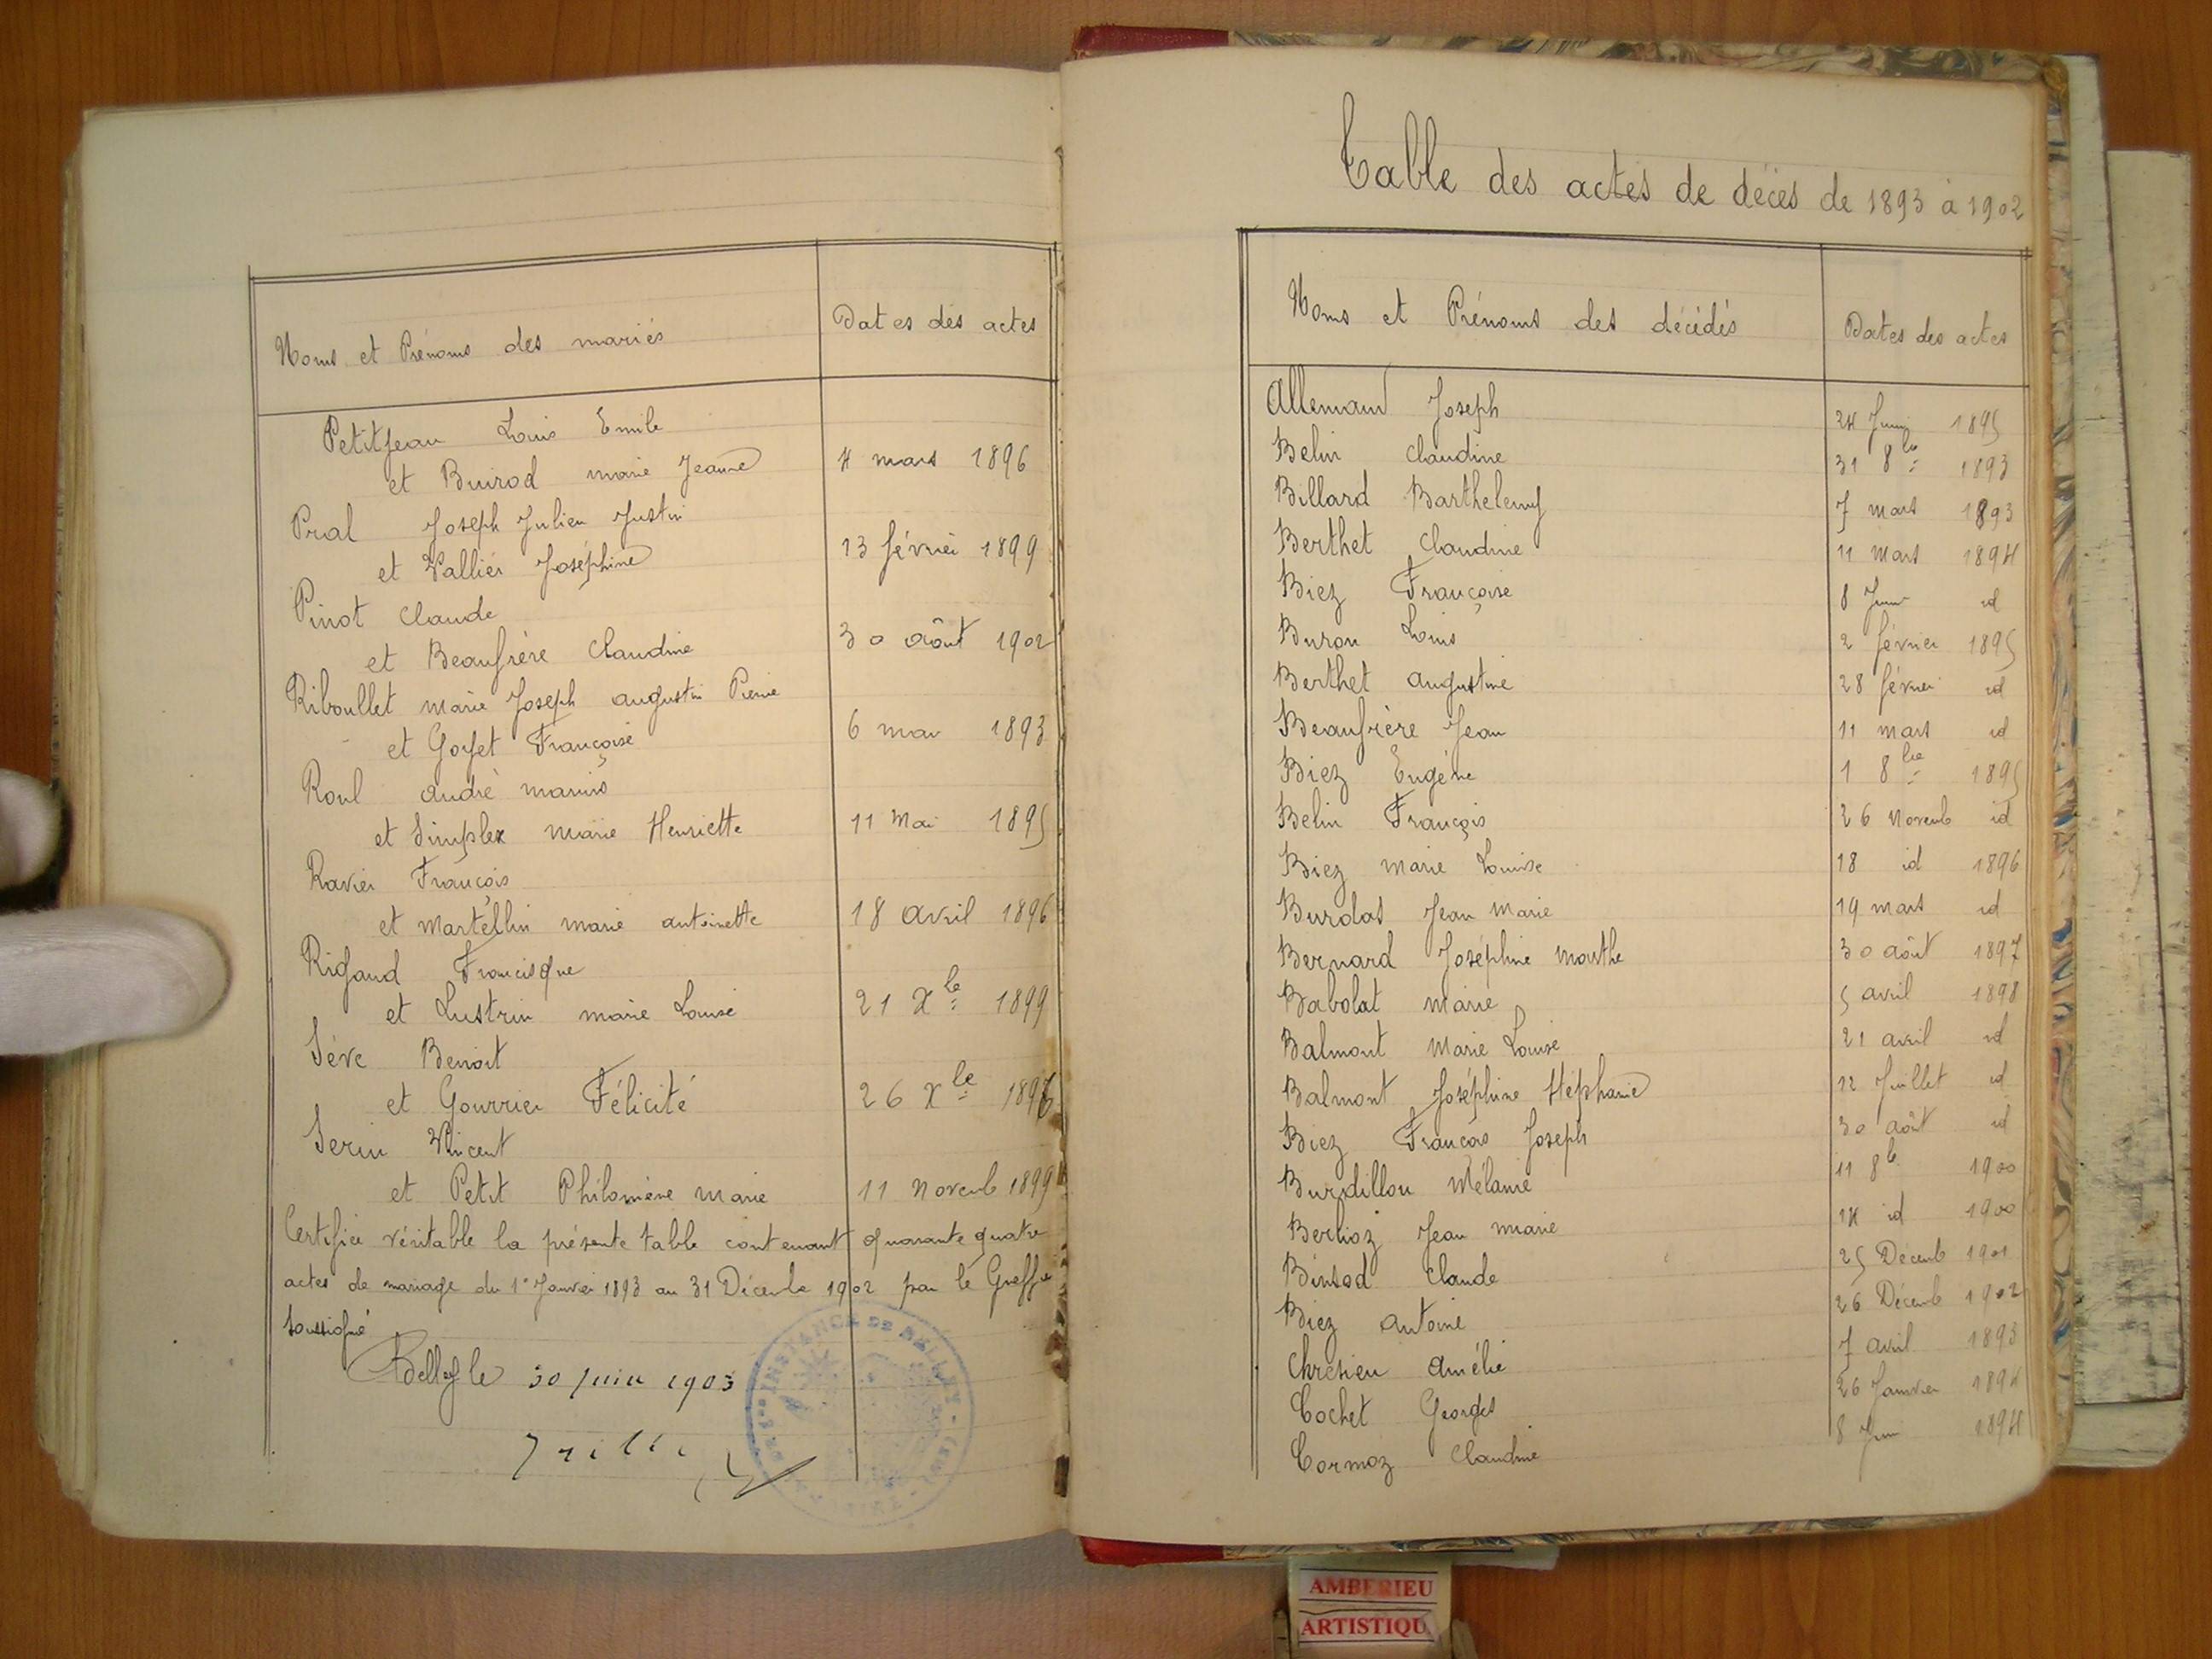 Noms et Prénoms des mariés Dates des actes
Petitjean Louis Emile
et Buirod marie Jeanne 4 mars 1896
Pral Joseph Julien Justin
et Vallier Joséphine 13 février 1899
Pinot Claude
et Beaufrère Claudine 30 août 1902
Riboullet marie Joseph augustin Pierre
et Goyet Françoise 6 mai 1893
Roul andré marius
et Simplex marie Henriette 11 Mai 1895
Ravier François
et Martellin marie antoinette 18 avril 1896
Rigaud Francisque
et Lustrin marie Louise 21 Xbre 1899
Sève Benoit
et Gourrier Félicité 26 Xbre 1896
Serin Vincent
et Petit Philomène marie 11 Novemb 1899
Certifiée véritable la présente table contenant quarante quatre
actes de mariage du 1er Janvier 1893 au 31 Décembre 1902 par le Greffier
soussigné
Belley le 30 juin 1903
INSTANCE DE BELLEY
Table des actes de décès de 1893 à 1902
Noms et Prénoms des décédés Dates des actes
Allemand Joseph 24 Juin 1895
Belin Claudine 31 8bre 1893
Billard Barthelemy 7 mars 1893
Berthet Claudine 11 mars 1894
Biez Françoise 8 Juin id
Buron Louis 2 février 1895
Berthet augustine 28 février id
Beaufrère Jean 11 mars id
Biez Eugène 1 8bre 1895
Belin François 26 Novemb id
Biez marie Louise 18 id 1896
Burdat Jean Marie 19 mars id
Bernard Joséphine marthe 30 août 1897
Babolat marie 5 avril 1898
Balmont Marie Louise 21 avril id
Balmont Joséphine Stéphanie 12 Juillet id
Biez François Joseph 30 août id
Burdillou Mélanie 11 8b 1900
Berlioz Jean marie 14 id 1900
Binsod Claude 25 Décemb 1901
Biez antoine 26 Décemb 1902
Chrétien Amélie 7 avril 1893
Cochet Georges 26 Janvier 1894
Cormoz Claudine 8 Juin 1894
AMBERIEU
ARTISTIQU